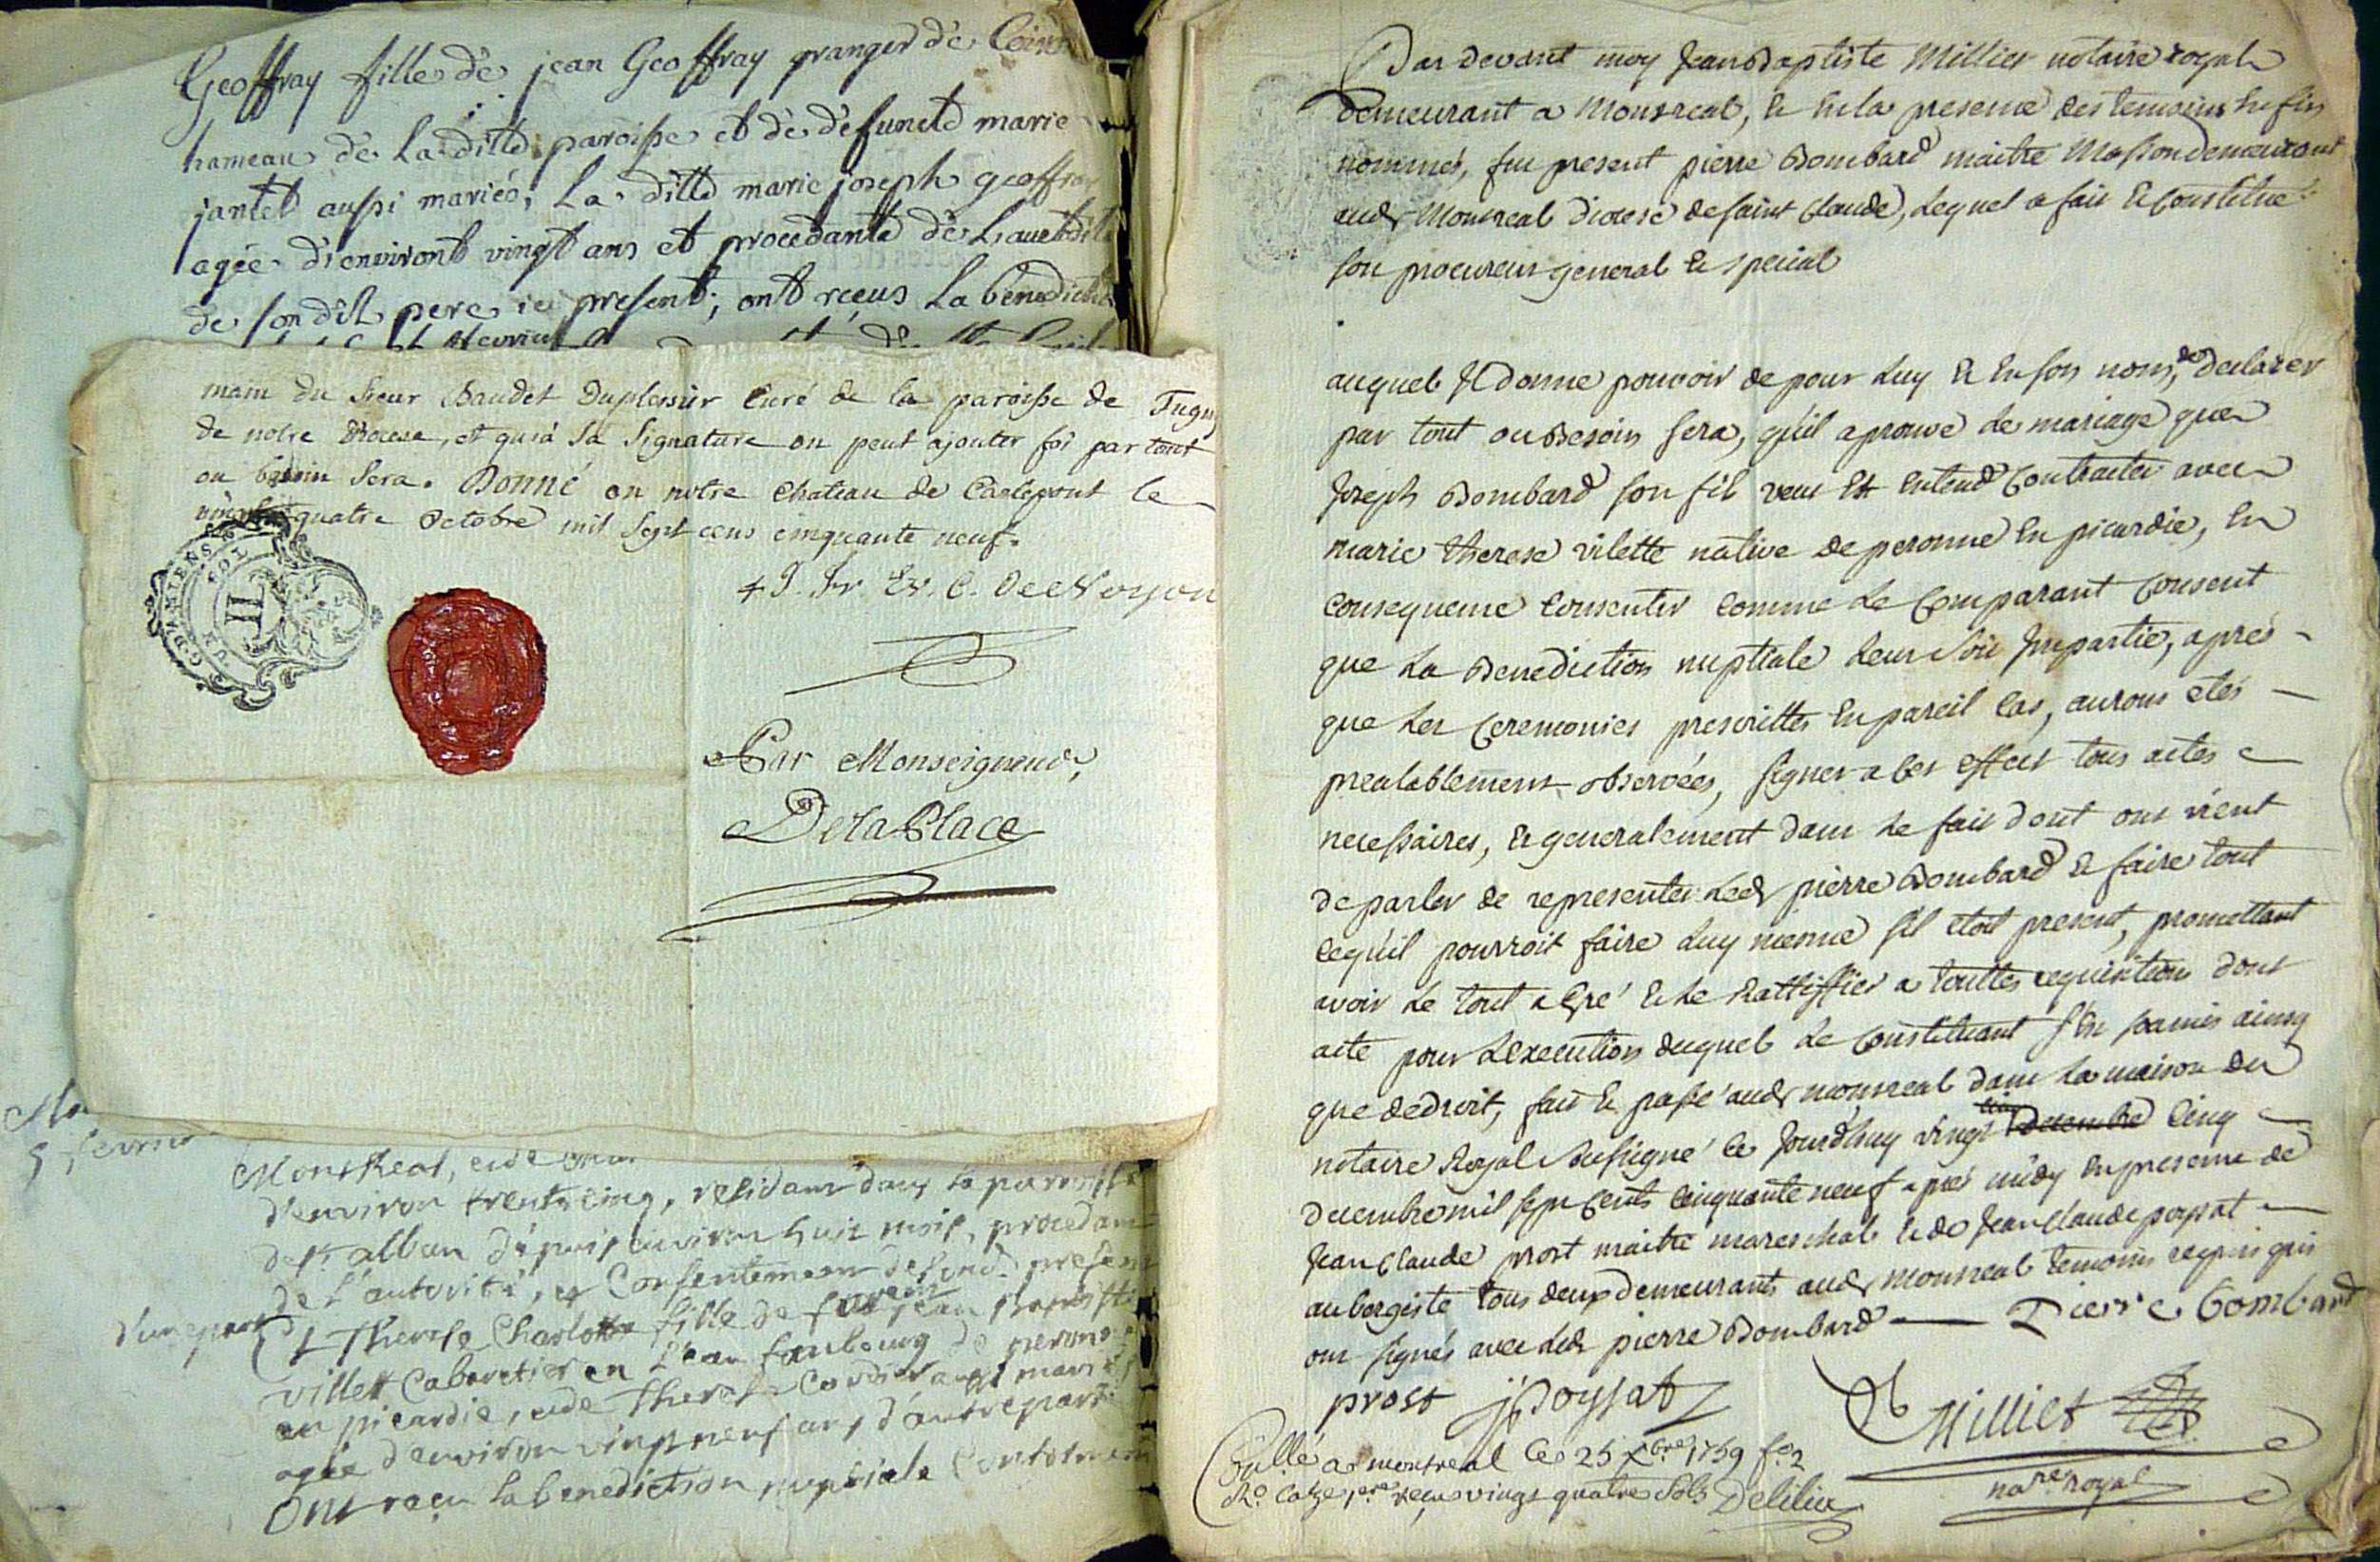 Geoffray fille de jean Geoffray granger de
hameau de La ditte paroisse et de defuncte marie
jantet aussi mariés, La ditte marie joseph geoffray
agée d'environt vingt ans et procedante de L'autorité
de son dit pere ici present; ont reçus La benedict
main du Sieur Baudet Duplessier Curé de la paroisse de Tugny
de notre Diocese, et qu'à sa signature on peut ajouter foi par tout
ou besoin sera. Donné en notre chateau de Carlepont le
vingt quatre Octobre mil sept cens cinquante neuf.
+ J. Fr Ev. C. De Noyon
Par Monseigneur,
Delaplace
G. D'AMIENS
5 fevrier
Montreal, et de
d'environ trente cinq, residant dans la paroisse
de st alban depuis environ huit mois, procedant
de l'autorité, et Consentement de sond. present
d'une part Et Therese Charlotte fille de feu jean Baptiste
villett Cabaretier en l'eau faubourg de perone
en picardie, et de Therese Cordier aussi mariés
agée d'environ vingt neuf ans d'autre part
Ont reçu la benediction nuptiale
Par devant moy Jean Baptiste Millier notaire royal
demeurant a Montreal, et en la presence des temoins en fin
nommés, fut present pierre Bombard maitre Masson demeurant
aud. Montreal diocese de saint Claude, Lequel a fait et Constitué
son procureur general et special
auquel Il donne pouvoir de pour Luy et en son nom, de declarer
par tout ou Besoin sera, qu'il aprouve le mariage que
Joseph Bombard son fil veut et entend Contracter avec
marie therese vilette native de peronne en picardie, en
consequence consentir comme Le Comparant consent
que La Benediction nuptiale Leur soit Impartie, après
que Les Ceremonies prescrittes en pareil Cas, auront etés
prealablement observées, signer a cet effect tous actes
necessaires, et generalement dans Le fait dont ont vient
de parler de representer Led. pierre Bombard et faire tout
cequ'il pourroit faire Luy mesme s'il etoit present, promettant
avoir Le tout agré et Le Rattiffier a touttes requisition dont
acte pour L'execution duquel Le Constituant s'en soumis ainsy
que dedroit, fait et passé aud. montreal dans La maison du
notaire Royal Soussigné Ce Jourd'huy vingt decembre cinq
decembre mil sept cents cinquante neuf après midy en presence de
Jean Claude prost maitre mareschal et de Jean Claude poysat
aubergiste tous deux demeurants aud. Montreal temoins requis qui
ont signés avec Led. pierre Bombard Pierre bombard
prost jj Poysat Milliet
nore royal
Cullé a montreal Le 25 Xbre 1759 fo 2
Ro Caze 1ere reçu vingt quatre sols Delilia